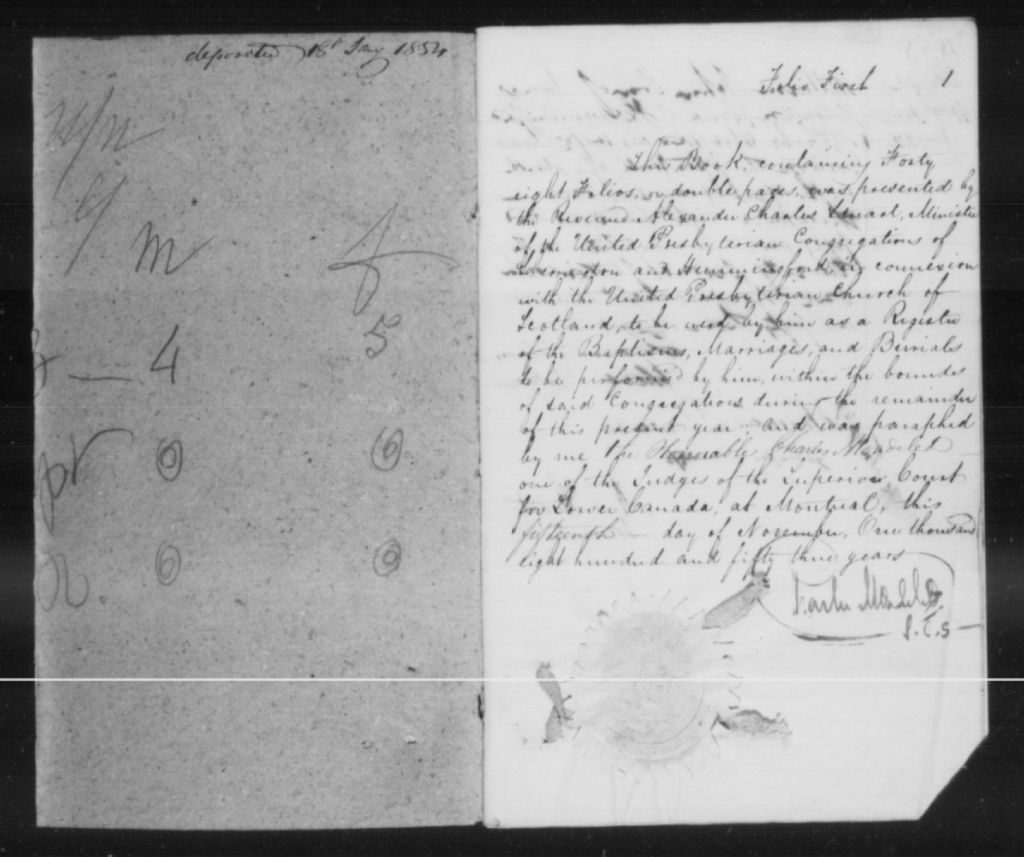 deposited 18t Jany 1854
m f
4 5
0 0
0 0
Folio First 1
This Book, containing Forty
eight Folios, or double pages, was presented by
the Reverend Alexander Charles Stuart, Minister
of the United Presbyterian Congregations of
Sherrington and Hemmingford, in connexion
with the United Presbyterian Church of
Scotland, to be used by him as a Register
of the Baptisms, Marriages, and Burials
to be performed by him, within the bounds
of said Congregations during the remainder
of this present year; and was paraphed
by me the Honorable Charles Mondelet
one of the Judges of the Superior Court
for Lower Canada, at Montreal, this
fifteenth day of November, One thousand
eight hundred and fifty three years
Charles Mondelet
J.C.S